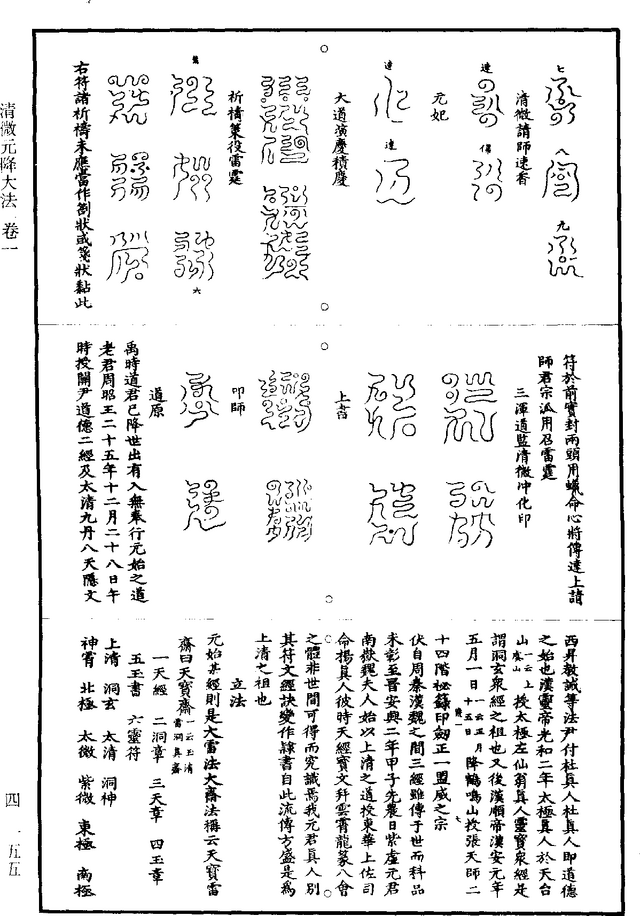 清微元降大法 卷一
七
八
九
清微請師速香
達
傳
元妃
達
達
大道演慶積慶
祈禱策役雷霆
六
右符諸祈禱未應當作劄狀或箋狀黏此
符於前實封兩頭用蠟命心將傳達上請
師君宗派用召雷霆
三渾道監清微沖化印
上啓
叩師
道原
禹時道君已降世出有入無奉行元始之道
老君周昭王二十五年十二月二十八日午
時授關尹道德二經及太清九丹八天隱文
西昇教誡等法尹付杜真人杜真人即道德
之始也漢靈帝光和二年太極真人於天台
山一云上虞山授太極左仙翁真人靈寶衆經是
謂洞玄衆經之祖也又後漢順帝漢安元年
五月一日一云正月十五日降鶴鳴山授張天師二
十四階祕籙印劍正一盟威之宗
伏自周秦漢魏之間三經雖傳于世而科品
未彰至晉安興二年甲子先農日紫虛元君
南嶽魏夫人始以上清之道授東華上佐司
命楊真人彼時天經寶文幷雲霄龍篆八會
之體非世間可得而究識焉我元君真人別
其符文經訣變作隸書自此流傳方盛是爲
上清之祖也
立法
元始其經則是大雷法大齋法稱云天寶雷
齋曰天寶齋一云玉清雷洞真齋
一天經 二洞章 三天章 四玉章
五玉書 六靈符
上清 洞玄 太清 洞神
神霄 北極 太微 紫微 東極 南極
四 一五五